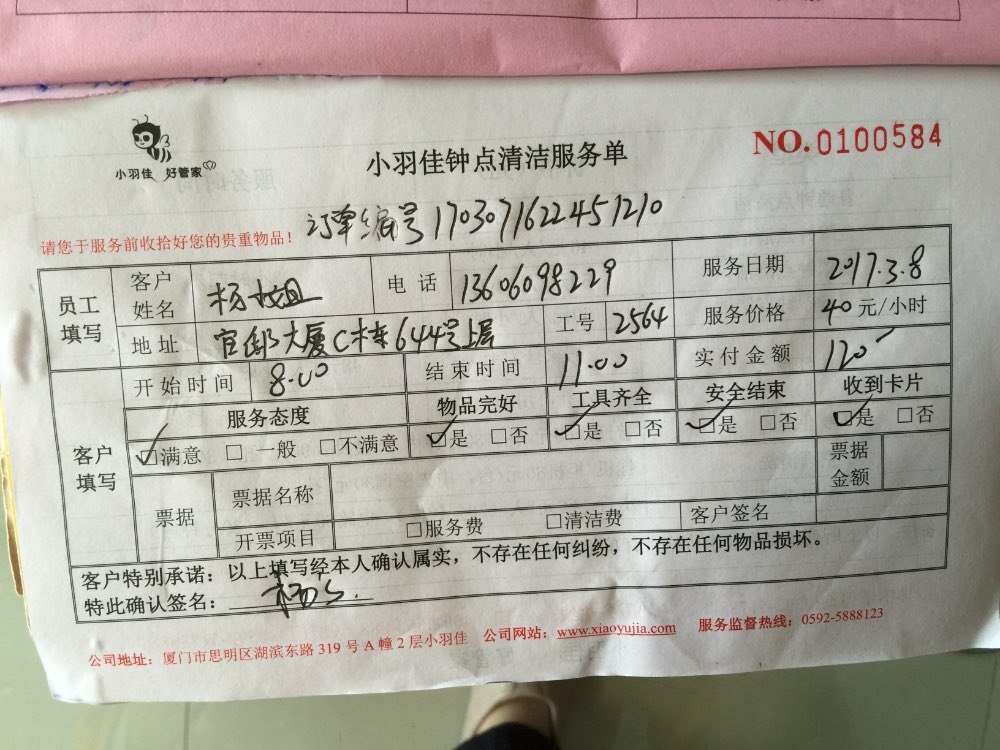 小羽佳 好管家
小羽佳钟点清洁服务单
NO.0100584
订单编号1703071622451210
请您于服务前收拾好您的贵重物品！
员工填写 客户姓名 杨小姐 电话 13606098229 服务日期 2017.3.8
地址 官邸大厦C栋644号上层 工号 2564 服务价格 40元/小时
客户填写 开始时间 8:00 结束时间 11:00 实付金额 120
服务态度 物品完好 工具齐全 安全结束 收到卡片
☑满意 □一般 □不满意 ☑是 □否 ☑是 □否 ☑是 □否 ☑是 □否
票据 票据名称 票据金额
开票项目 □服务费 □清洁费 客户签名
客户特别承诺：以上填写经本人确认属实，不存在任何纠纷，不存在任何物品损坏。
特此确认签名：杨
公司地址：厦门市思明区湖滨东路319号A幢2层小羽佳 公司网站：www.xiaoyujia.com 服务监督热线：0592-5888123